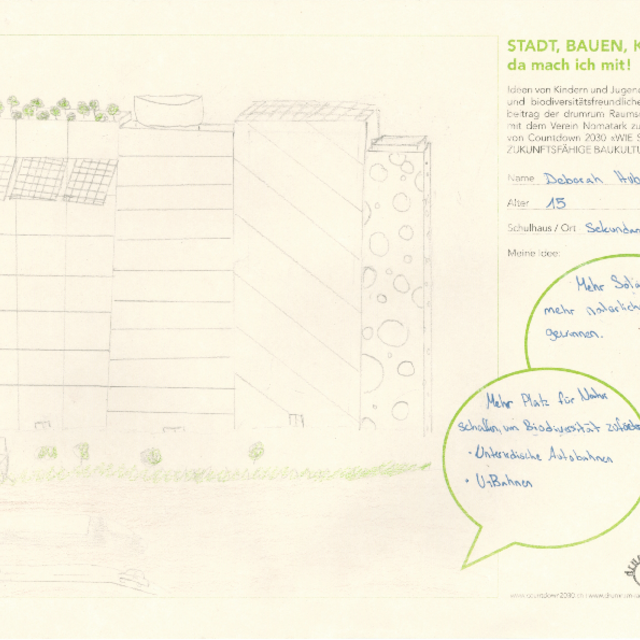 STADT, BAUEN, K
da mach ich mit!
Ideen von Kindern und Jugend
und biodiversitätsfreundliche
beitrag der drumrum Raumsc
mit dem Verein Nomatark zu
von Countdown 2030 «WIE S
ZUKUNFTSFÄHIGE BAUKULTU
Name Deborah Hub
Alter 15
Schulhaus / Ort Sekundar
Meine Idee:
Mehr Sola
mehr natürliche
gewinnen.
Mehr Platz für Natur
schaffen, um Biodiversität
• Unterirdische Autobahnen
• U-Bahnen
www.countdown2030.ch